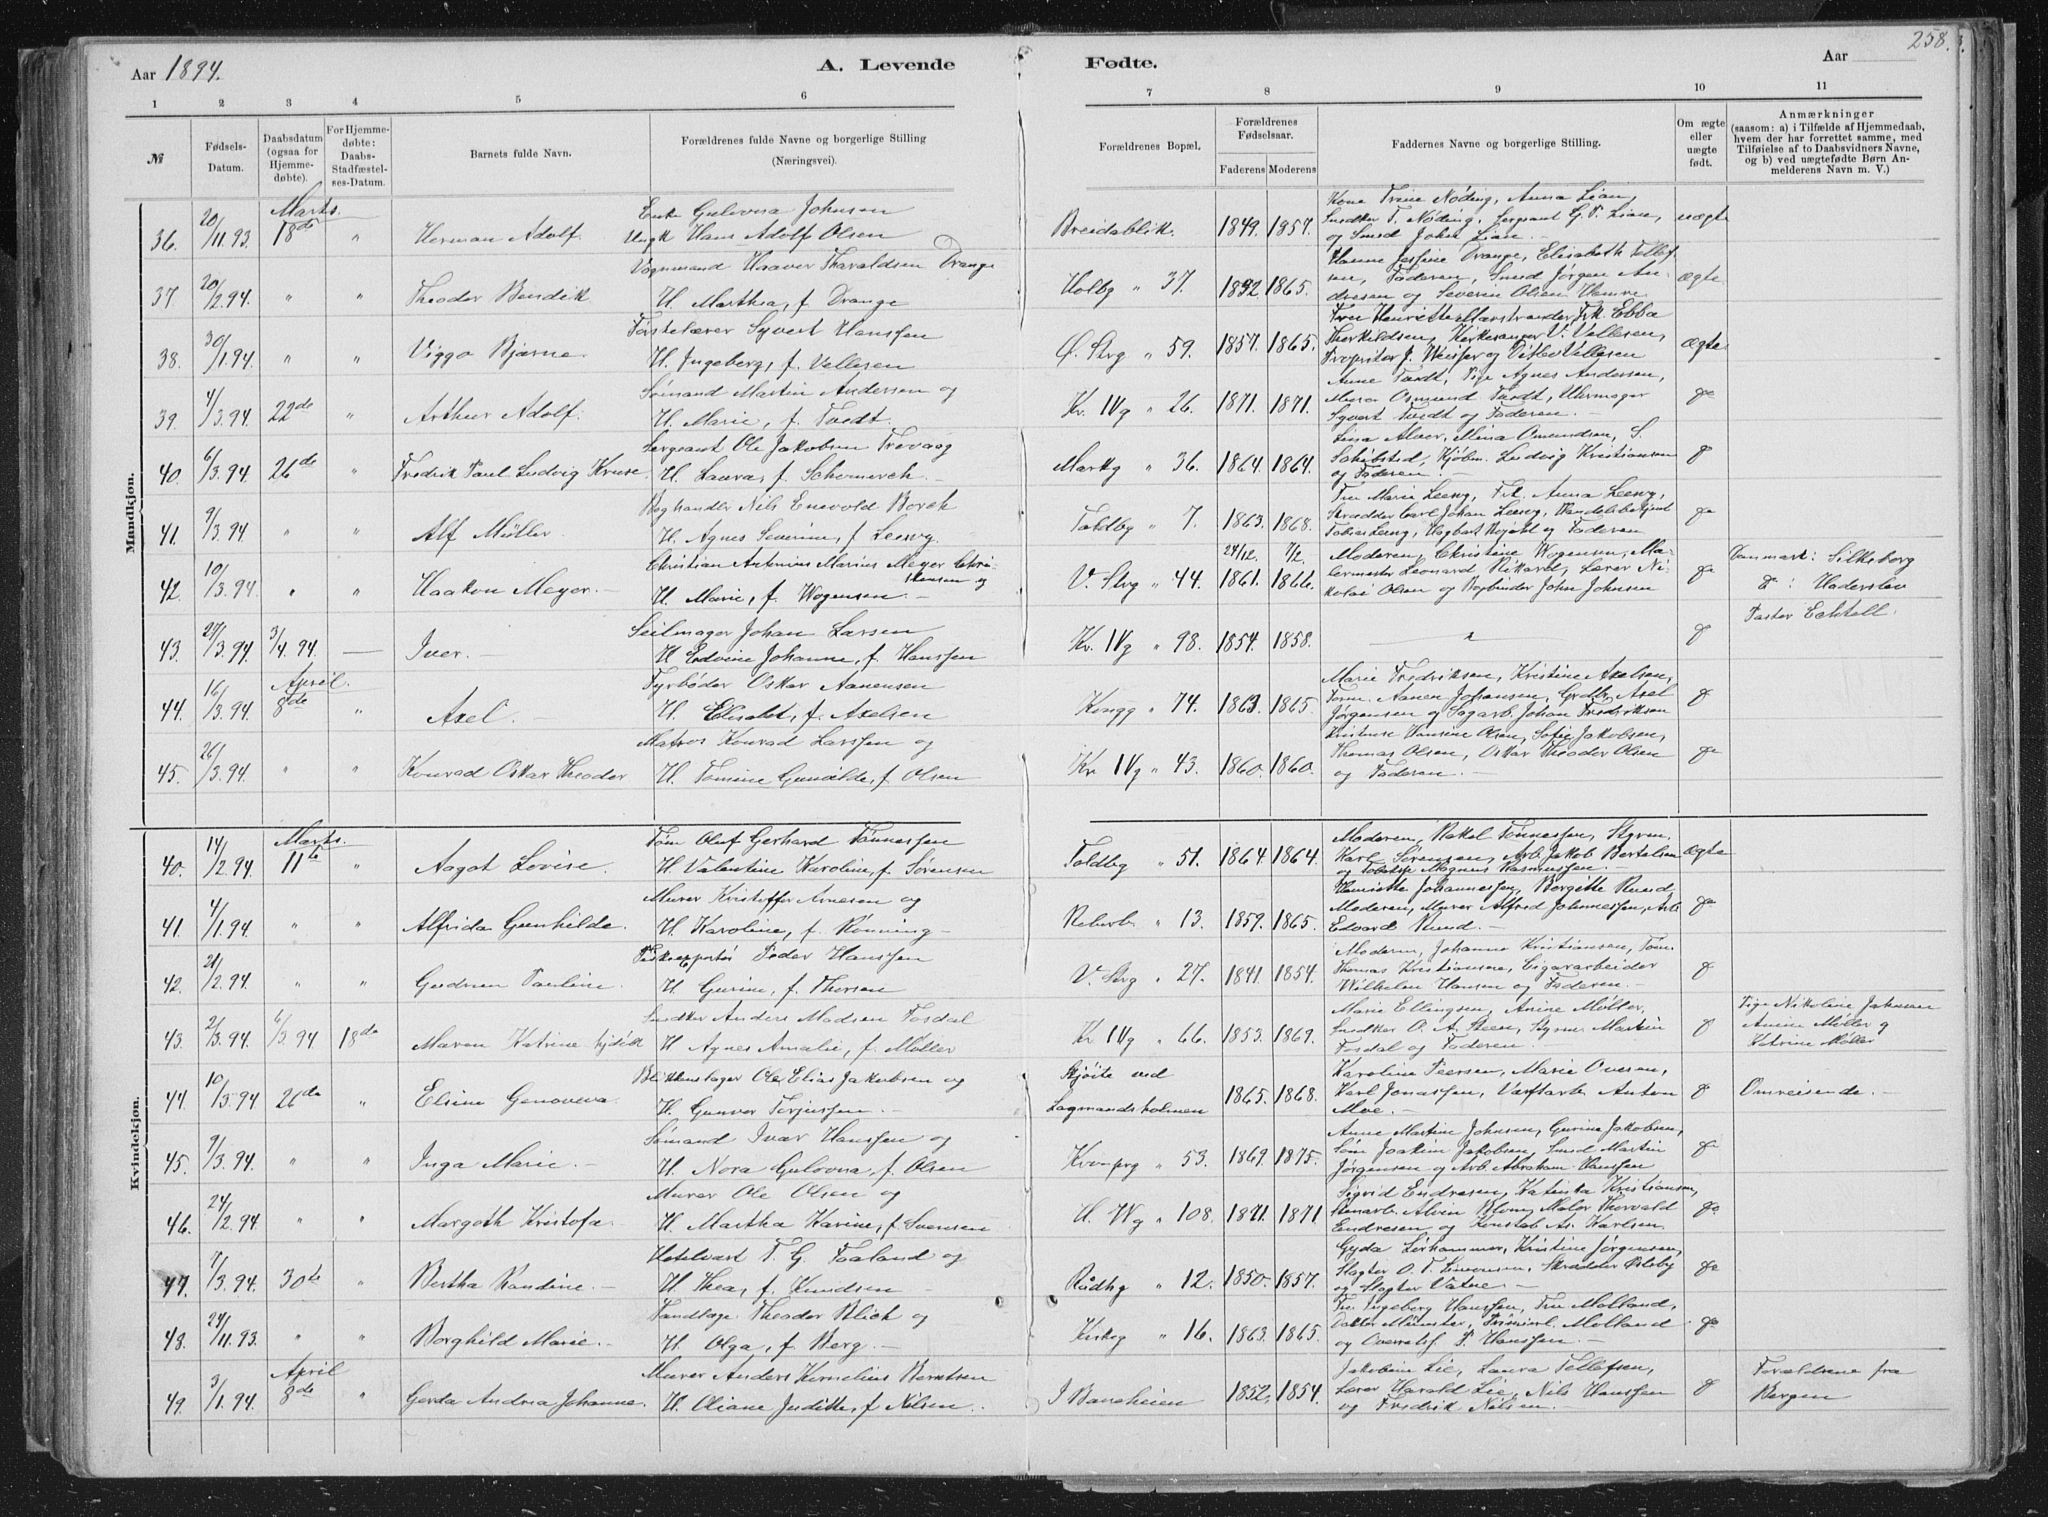 258.
Aar 1894.
A. Levende
Fødte.
Aar
1 2 3 4 5 6 7 8 9 10 11
№
Fødsels-
Datum.
Daabsdatum
(ogsaa for
Hjemme-
døbte).
For Hjemme-
døbte:
Daabs-
Stadfæstel-
ses-Datum.
Barnets fulde Navn.
Forældrenes fulde Navne og borgerlige Stilling
(Næringsvei).
Forældrenes Bopæl.
Forældrenes
Fødselsaar.
Faderens Moderens
Faddernes Navne og borgerlige Stilling.
Om ægte
eller
uægte
født.
Anmærkninger
(saasom: a) i Tilfælde af Hjemmedaab,
hvem der har forrettet samme, med
Tilføielse af to Daabsvidners Navne,
og b) ved uægtefødte Børn An-
melderens Navn m. V.)
Mandkjøn.
Marts.
36. 20/11.93. 18de " Herman Adolf.
Enke Gulovna Johnsen
Ungk Hans Adolf Olsen
Breidablik. 1849. 1857.
Kone Trine Nøding, Anna Lian,
Snedker T. Nøding, Sergeant G. P. Lian,
og Smed John Lian.
uægte
37 20/2.94. " " Theodor Bendik
Vognmand Haaver Tharaldsen Drange
H. Marthea, f. Drange
Holbg " 37. 1832 1865.
Hanne Jesine Drange, Elisabeth Tellef-
sen, Faderen, Smed Jørgen An-
dresen og Severin Olsen Hamre
ægte
38. 30/1.94. " " Viggo Bjarne.
Førstelærer Syvert Hanssen
H. Ingeberg, f. Vellesen
Ø. Strg " 59. 1857. 1865.
Fru Henriette Marstrander, Frk Ebba
Therkildsen, Kirkesanger V. Vellesen,
ægte
39. 4/3.94. 22de " Arthur Adolf.
Sømand Martin Andersen og
H. Marie, f. Tvedt.
Kr. IVg " 26. 1871. 1871.
Anne Tvedt, Pige Agnes Andersen,
Murer Osmund Tvedt, Uhrmager
Syvert Tvedt og Faderen.
do
40. 6/3.94. 26de " Fredrik Paul Ludvig Kruse.
Sergeant Ole Jakobsen Trevaag
H. Laura, f.
Markg " 36. 1864. 1864.
Lina Alver, Mina Omundsen, S.
Schibsted, Kjøbm. Ludvig Kristiansen
og Faderen.
41. 9/3.94 " " Alf Müller.
Boghandler Nils Enevold Borch
H. Agnes Severine, f. Leewy.
Toldbg " 7. 1863. 1868.
Fru Marie Leewy, Frk. Anna Leewy,
Skrædder Carl Johan Leewy, Handelsbetjent
Tobias Leewy, og Faderen
do
42. 10/3.94. " " Haakon Meyer.
Christian Antonius Marius Meyer Chri-
stensen og
H. Marie, f. Wogensen.
V. Strg " 44. 24/12. 1861. 7/2. 1866.
Moderen, Christine Wogensen, Ma-
lermester Leonard Rikard, Lærer Ni-
kolai Olsen og Bogbinder John Johnsen
do
Danmark: Silkeborg
do: Haderslev
43. 27/3.94. 3/4.94. — Iver.
Seilmager Johan Larsen
H. Edvine Johanne, f. Hanssen
Kr. IVg " 98. 1854. 1858.
do
Pastor
April.
44. 16/3.94. 8de " Axel.
Fyrbøder Oskar Aanensen
H. Elisabet, f. Axelsen
Kongg " 74. 1863 1865.
Marie Fredriksen, Kristine Axelsen,
Tøm. Aanen Johansen, Axel
Jørgensen og Sagarb. Johan Fredriksen
do
45. 26/3.94. " " Konrad Oskar Theodor
Matros Konrad Larssen og
H. Tomine Gunilde, f. Olsen
Kr. IVg " 43. 1860. 1860.
Hansine Olsen, Sofie Jakobsen,
Thomas Olsen, Oskar Theodor Olsen
og Faderen.
do
Kvindekjøn.
Marts.
40. 14/2.94. 11te " Aagot Lovise.
Tøm Oluf Gerhard Tønnessen
H. Valentine Karoline, f. Sørensen
Toldbg " 51. 1864. 1864.
Moderen, Rakel Tønnessen, Styrm.
Karl Sørensen, Arb. Jakob Bertelsen
og Magnus Rasmussen.
ægte
41. 4/1.94. " " Alfrida Gunhilde.
Murer Kristoffer Arnesen og
H. Karoline, f. Rønning
" 13. 1859. 1865.
Henriette Johannessen, Borgitte Ruud,
Moderen, Murer Alfred Johannessen, Arb.
Edvard Ruud.
do
42. 21/2.94. " " Gudrun Pauline.
Peder Hanssen
H. Gurine, f. Thorsen
V. Strg " 27. 1841. 1854.
Moderen, Johanne Kristiansen, Tøm.
Thomas Kristiansen, Cigararbeider
Wilhelm Hansen og Faderen.
do
43. 2/3.94. 6/3.94 18de Maren Katrine
Snedker Anders Madsen Fosdal
H. Agnes Amalie, f. Møller
Kr. IVg " 66. 1853. 1869.
Marie Ellingsen, Anine Møller,
Snedker O. A. Steen, Styrm. Martin
Fosdal og Faderen.
do
Pige Nikoline Johnsen
Anine Møller og
Katrine Møller
44. 10/3.94 26de " Elsine Genoveva.
Blikkenslager Ole Elias Jakobsen og
H. Gunvor Torjussen.
Skjøite ved
Lagmandsholmen 1865. 1868.
Karoline Peersen, Marie Ovesen,
Karl Jonassen, Værftsarb. Anton
Moe.
do
Omreisende.
45. 9/3.94. " " Inga Marie.
Sømand Ivar Hanssen og
H. Nora Gulovna, f. Olsen
Kronprg " 53. 1869. 1875.
Anne Martine Johnsen, Gurine Jakobsen,
Søm Joakim Jakobsen, Smed Martin
Jørgensen og Arb. Abraham Hanssen
do
46. 24/2.94 " " Margoth Kristofa.
Murer Ole Olsen og
H. Martha Karine, f. Svensen
H. Wg " 108. 1871. 1871.
Sigrid Endresen, Katinka Kristiansen,
Stenarb. Alvin Blom, Maler Thorvald
Endresen og Konstab Ar. Karlsen.
do
47. 7/3.94. 30te " Bertha Randine.
Hotelvært T. G. Faaland og
H. Thea, f. Knudsen
Rådhg " 12. 1850. 1857.
Gyda Lirhammer, Kristine Jørgensen,
Slagter O. T. Simonsen, Skrædder Østeby
og Slagter Vatne.
do
48. 24/11.93. " " Borghild Marie.
Tandlæge Theodor Blich og
H. Olga, f. Berg.
Kirkeg " 16. 1863. 1865.
Fru Ingeberg Hanssen, Fru Molland,
Doktor Münster, Molland
og Overretssf. P. Hanssen.
do
April
49. 3/1.94. 8de " Gerda Andrea Johanne.
Murer Anders Kornelius Berntsen
H. Oliane Judithe, f. Nilsen.
I Baneheien 1852. 1854.
Jakobine Lie, Laura Tellefsen,
Lærer Harald Lie, Nils Hanssen
og Fredrik Nilsen.
do
Forældrene fra
Bergen